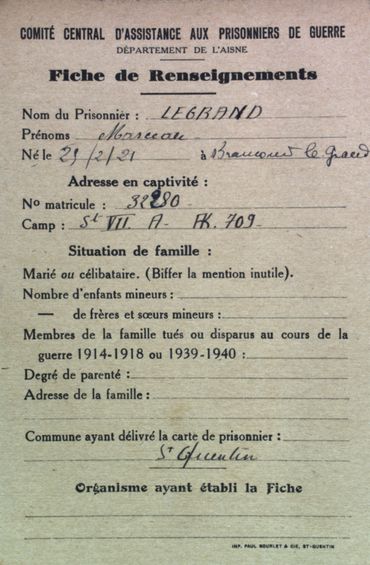 COMITÉ CENTRAL D'ASSISTANCE AUX PRISONNIERS DE GUERRE
DÉPARTEMENT DE L'AISNE
Fiche de Renseignements
Nom du Prisonnier : LEGRAND
Prénoms Marceau
Né le /2/21 à le Grand
Adresse en captivité :
No matricule :
Camp : St VII. A - AK. 709
Situation de famille :
Marié ou célibataire. (Biffer la mention inutile).
Nombre d'enfants mineurs :
— de frères et sœurs mineurs :
Membres de la famille tués ou disparus au cours de la
guerre 1914-1918 ou 1939-1940 :
Degré de parenté :
Adresse de la famille :
Commune ayant délivré la carte de prisonnier :
St Quentin
Organisme ayant établi la Fiche
IMP. PAUL BOURLET & CIE, ST-QUENTIN